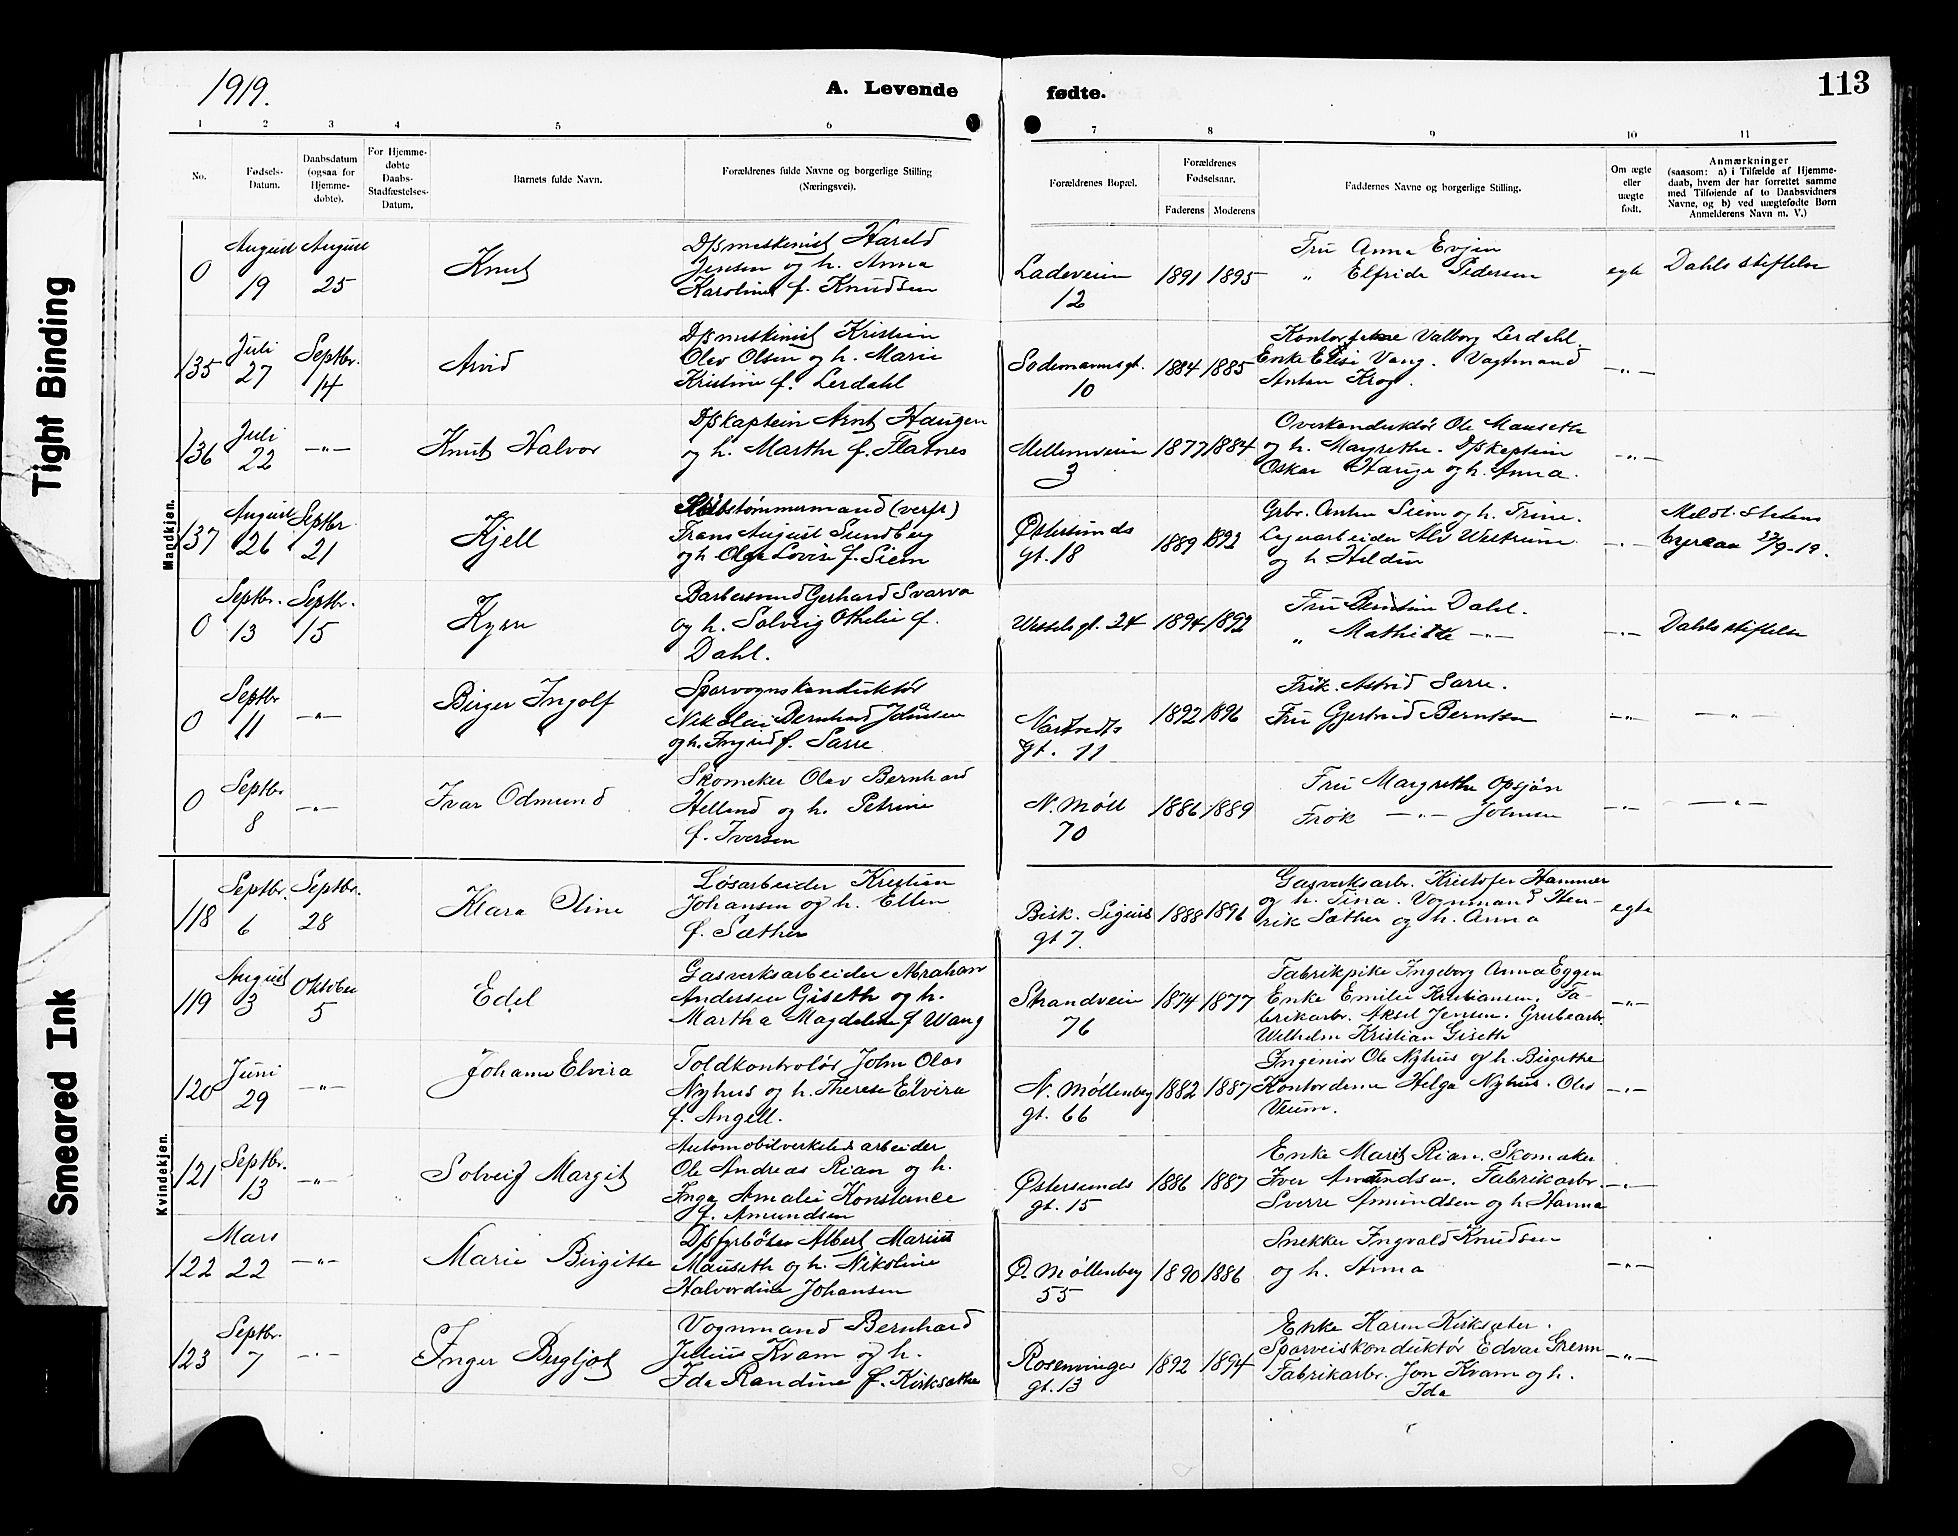 Tight Binding
Smeared Ink
1919.
A. Levende fødte.
113
1 2 3 4 5 6 7 8 9 10 11
No.
Fødsels-
Datum.
Daabsdatum
(ogsaa for
Hjemme-
døbte).
For Hjemme-
døbte
Daabs-
Stadfæstelses-
Datum.
Barnets fulde Navn.
Forældrenes fulde Navne og borgerlige Stilling
(Næringsvei).
Forældrenes Bopæl.
Forældrenes
Fødselsaar.
Faderens Moderens
Faddernes Navne og borgerlige Stilling.
Om ægte
eller
uægte
født.
Anmærkninger
(saasom: a) i Tilfælde af Hjemme-
daab, hvem der har forrettet samme
med Tilføiende af to Daabsvidners
Navne, og b) ved uægtefødte Børn
Anmelderens Navn m. V.)
Mandkjøn.
0
August
19
August
25
Knut
D/smaskinist Harald
Jensen og h. Anna
Karoline f. Knudsen
Ladeveien
12
1891 1895
Fru Anna Evjen
" Elfrida Pedersen
egte
Dahls stiftelse
135
Juli
27
Septbr.
14
Arvid
D/smaskinist Kristian
Olav Olsen og h. Marie
Kristine f. Lerdahl
Sodemannsgt.
10
1884 1885
Valborg Lerdahl.
Enke Elise Vang. Vagtmand
Anton Krog.
-"-
136
Juli
22
-"-
Knut Halvor
D/skaptein Arnt Haugen
og h. Marthe f. Flatnes
Mellemveien
3
1877 1884
Overkonduktør Ole Mauseth
og h. Margrethe. D/skaptein
Oskar Hauge og h. Anna.
-"-
137
August
26
Septbr.
21
Kjell
Skibstømmermand (verft)
Frans August Sundberg
og h Olga Lovise f. Siem
Østersunds
gt. 18
1889 1892
Grbr. Anton Siem og h. Trine.
Lagerarbeider Alv Westrum
og h Heldin
-"-
0
Septbr.
13
Septbr.
15
Kyrre
Barbersvend Gerhard Svarva
og h. Solveig Othelie f.
Dahl.
Wesselsgt. 24
1894 1892
Fru Berntine Dahl.
" Mathilde -"-
-"-
Dahls stiftelse
0
Septbr
11
-"-
Birger Ingolf
Sporvognskonduktør
Nikolai Bernhard Johnsen
og h. Ingrid f. Sarre
gt. 11
1892 1896
Frøk. Astrid Sarre.
Fru Gjertrud Berntsen
-"-
-"-
0
Septbr
8
-"-
Ivar Odmund
Skomaker Olav Bernhard
Helland og h. Petrine
f. Iversen
N. Møll
70
1886 1889
Fru Margrethe Opsjøn
Frøk -"- Johnsen
-"-
-"-
Kvindekjøn.
118
Septbr.
6
Septbr.
28
Klara Oline
Løsarbeider Kristian
Johansen og h. Ellen
f. Sæther
Bisk. Sigurds
gt 7.
1888 1896
Gasverksarbr. Kristofer Hammer
og h. Tina. Vognmand Hen-
rik Sæther og h. Anna
egte
119
August
3
Oktober
5
Edel
Gasverksarbeider Abraham
Andersen Giseth og h.
Martha Magdelene f Wang
Strandveien
76
1874 1877
Fabrikpike Ingeborg Anna Eggen
Enke Emilie Kristiansen. Fa-
brikarbr. Aksel Jensen. Grubearbr.
Wilhelm Kristian Giseth
-"-
120
Juni
29
-"-
Johanne Elvira
Toldkontrolør John Olas
Nyhus og h. Therese Elvira
f. Angell.
N. Møllenberg
gt. 66
1882 1887
Ingeniør Ole Nyhus og h. Birgithe
Kontordame Helga Nyhus. Olas
Veum.
-"-
121
Septbr.
13
-"-
Solveig Margit
Automobilverkstedsarbeider
Ole Andreas Rian og h.
Inga Amalie Konstance
f. Amundsen
Østersunds
gt. 15
1886 1887
Enke Marit Rian. Skomaker
Iver Amundsen. Fabrikarbr.
Sverre Amundsen og h. Hanna
-"-
122
Mars
22
-"-
Marie Birgitte
D/sfyrbøter Albert Marius
Mauseth og h. Nikoline
Halvordine Johansen
Ø. Møllenberg
55
1890 1886
Snekker Ingvald Knudsen
og h. Anna
-"-
123
Septbr.
7
-"-
Inger Bergljot
Vognmand Bernhard
Julius Kvam og h.
Ida Randine f. Kirksæther
Rosenvinges
gt. 13
1892 1894
Enke Karen Kirksæter.
Sporveiskonduktør Edvar Grenn
Fabrikarbr. Jon Kvam og h.
Ida
-"-